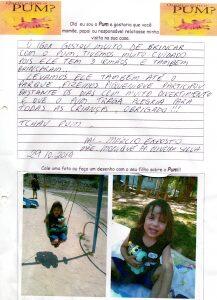 PUM?
PUM?
Olá eu sou o Pum e gostaria que você
mamãe, papai ou responsável relatasse minha
visita na sua casa.
O IGOR GOSTOU MUITO DE BRINCAR
COM O PUM, TIVEMOS MUITO CUIDADO
POIS ELE TEM 3 IRMÃOS, E TAMBÉM
BRINCARAM.
LEVAMOS ELE TAMBÉM ATÉ O
PARQUE
PARTICIPOU
BASTANTE OS DIAS COM MUITO
E QUE O PUM TRAGA ALEGRIA PARA
TODAS AS CRIANÇAS, OBRIGADO!!!
TCHAU PUM.
PAI - MÁRCIO
MÃE MONIQUE M. OLIVEIRA SILVA
29.10.2013
Cole uma foto ou faça um desenho com o seu filho sobre o Pum!!